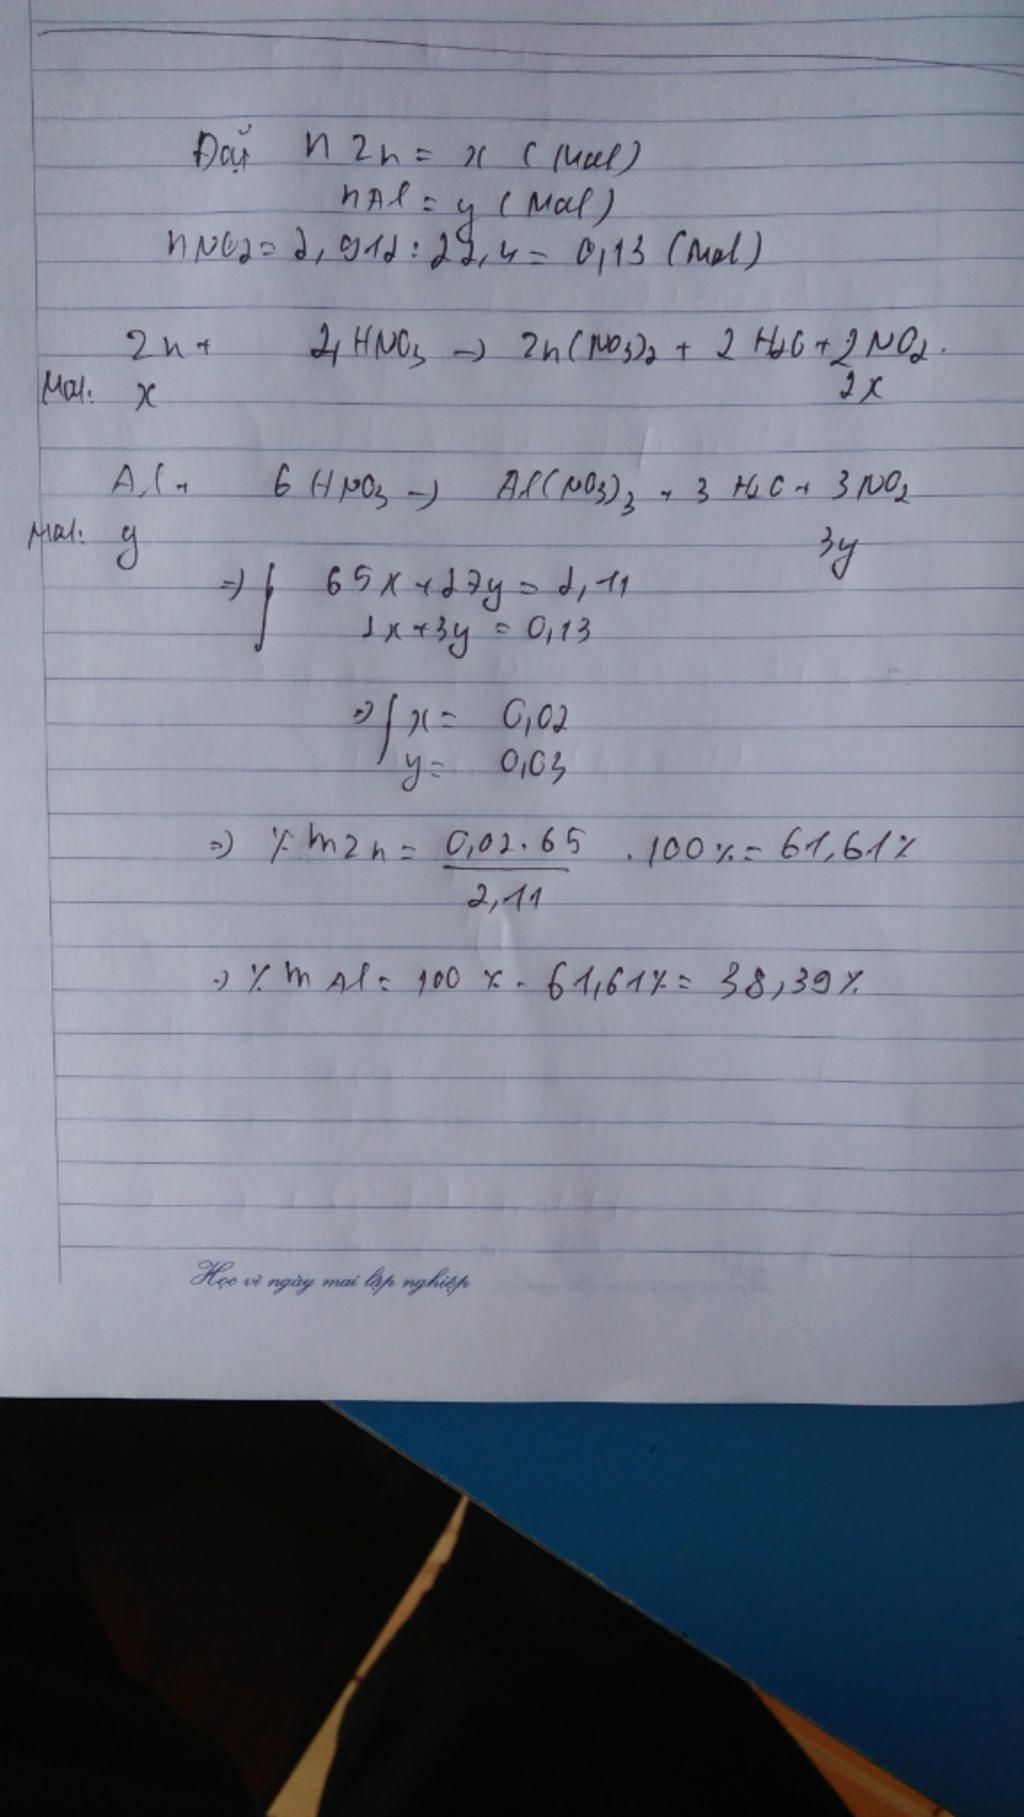 Đặt nZn = x (mol)
nAl = y (mol)
nNO2 = 2,912 : 22,4 = 0,13 (mol)
Zn + 4HNO3 → Zn(NO3)2 + 2H2O + 2NO2.
Mol: x 2x
Al + 6HNO3 → Al(NO3)3 + 3H2O + 3NO2
Mol: y 3y
=> { 65x + 27y = 2,11
2x + 3y = 0,13
=> { x = 0,02
y = 0,03
=> %mZn = 0,02.65 / 2,11 . 100% = 61,61%
=> %mAl = 100% - 61,61% = 38,39%
Học vì ngày mai lập nghiệp